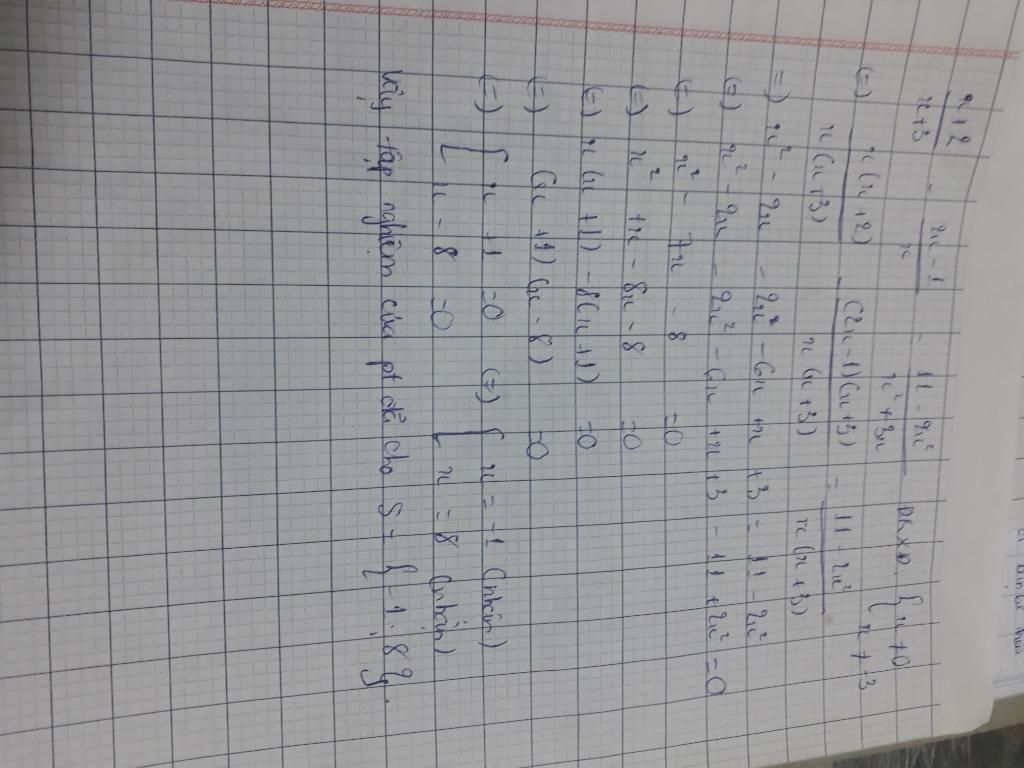 x+2/x+3 - 2x-1/x = 11-2x²/x²+3x ĐKXĐ: { x ≠ 0 x ≠ 3
(=) x(x+2)/x(x+3) - (2x-1)(x+3)/x(x+3) = 11-2x²/x(x+3)
=) x² - 2x - 2x² - 6x + x + 3 = 11 - 2x²
(=) x² - 2x - 2x² - 6x + x + 3 - 11 + 2x² = 0
(=) x² - 7x - 8 = 0
(=) x² + x - 8x - 8 = 0
(=) x(x+1) - 8(x+1) = 0
(=) (x+1)(x-8) = 0
(=) [ x+1 = 0 (=) [ x = -1 (nhận)
[ x - 8 = 0 [ x = 8 (nhận)
Vậy tập nghiệm của pt đã cho S = {-1; 8}.